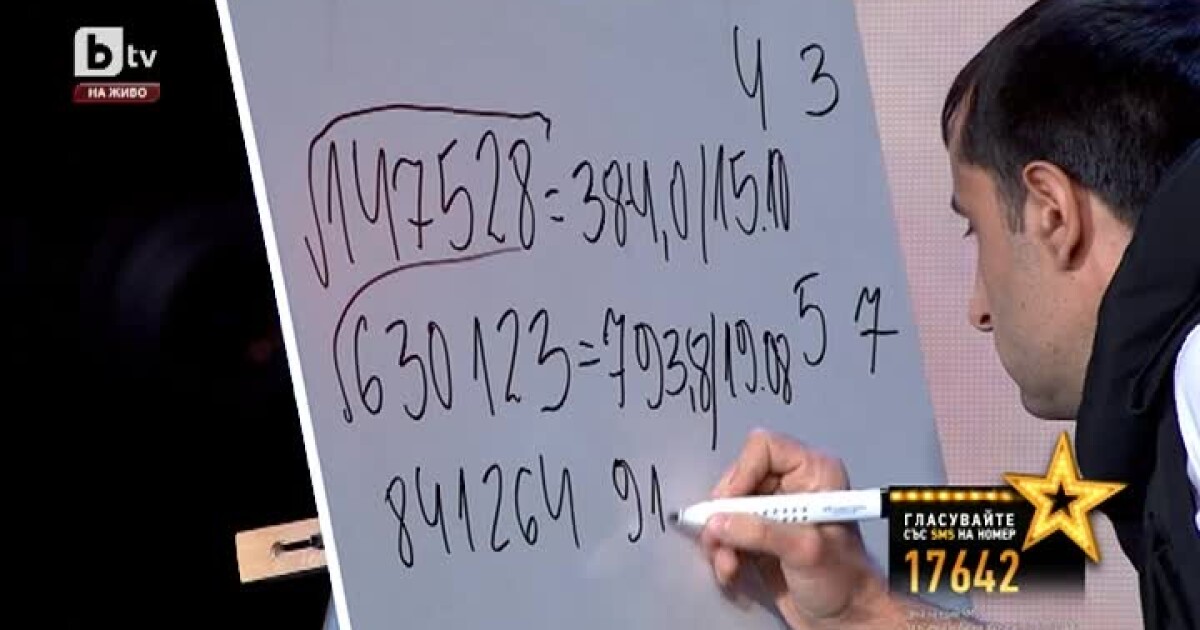 btv
НА ЖИВО
4 3
√147528 = 384,0/15.10
√630123 = 793,8/19.08 5 7
841264 91
ГЛАСУВАЙТЕ
СЪС SMS НА НОМЕР
17642